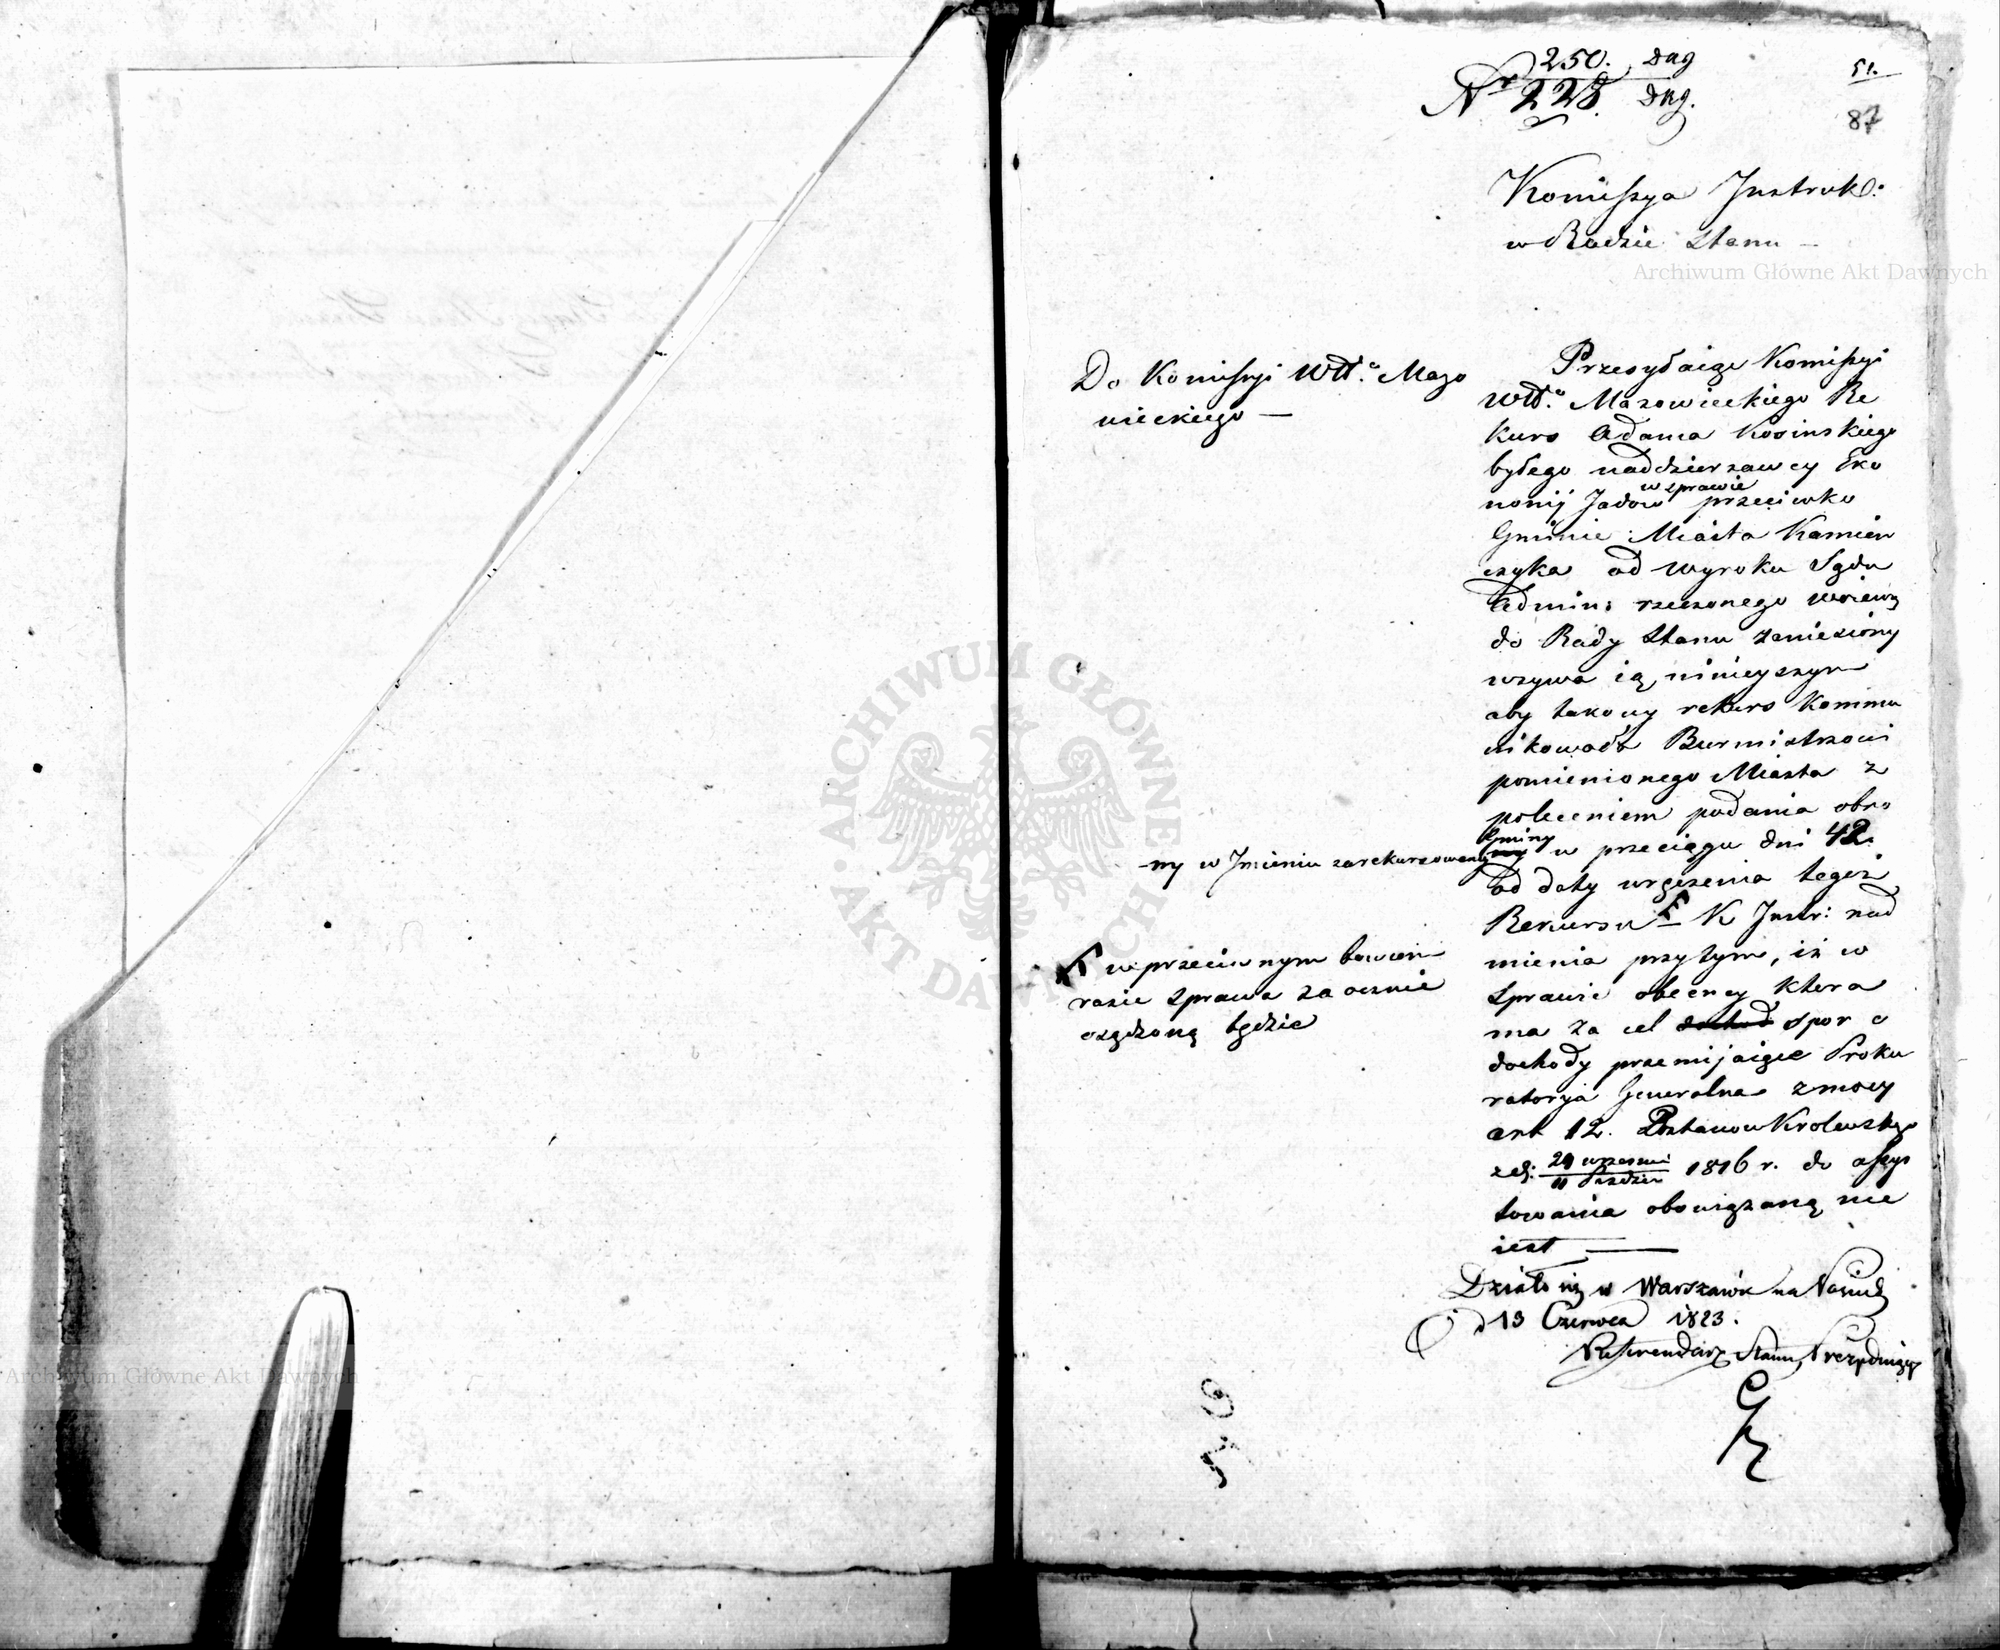 250. Dag
Nr 228. Dng.
51.
87
Komissya Instrukc:
w Radzie Stanu —
Do Komissyi Wdt.a Mazo
wieckiego —
Przesyłaiąc Komissyi
Wdt.a Mazowieckiego Re
kurs Adama Kosinskiego
byłego naddzierzawcy Eko
nomij Jadow w sprawie przeciwko
Gminie Miasta Kamien
czyka od wyroku Sądu
Admin: rzeczonego wojewo
do Rady Stanu zaniesiony
wzywa ią ninieyszym
aby takowy rekurs kommu
nikowała Burmistrzowi
pomienionego Miasta z
poleceniem podania obro
-ny w Jmieniu zarekursowaney Gminy w przeciągu dni 42.
od daty wręczenia tegoż
Rekursu F K Instr: nad
mienia przytym, iż w
sprawie obecney ktora
ma za cel dochod spor o
dochody przemijaiące Proku
ratorya Generalna z mocy
art 12. Postanow Krolewskiego
z dj: 29 wrzesnia / 11 Pazdzier 1816 r. do assys
towania obowiązaną nie
iest —
F w przeciwnym bowiem
razie sprawa zaocznie
osądzoną będzie
Działo się w Warszawie na Posiedz
d 13 Czerwca 1823.
Referendarz Stanu, Prezyduiący
Archiwum Główne Akt Dawnych
ARCHIWUM GŁÓWNE AKT DAWNYCH
Archiwum Główne Akt Dawnych